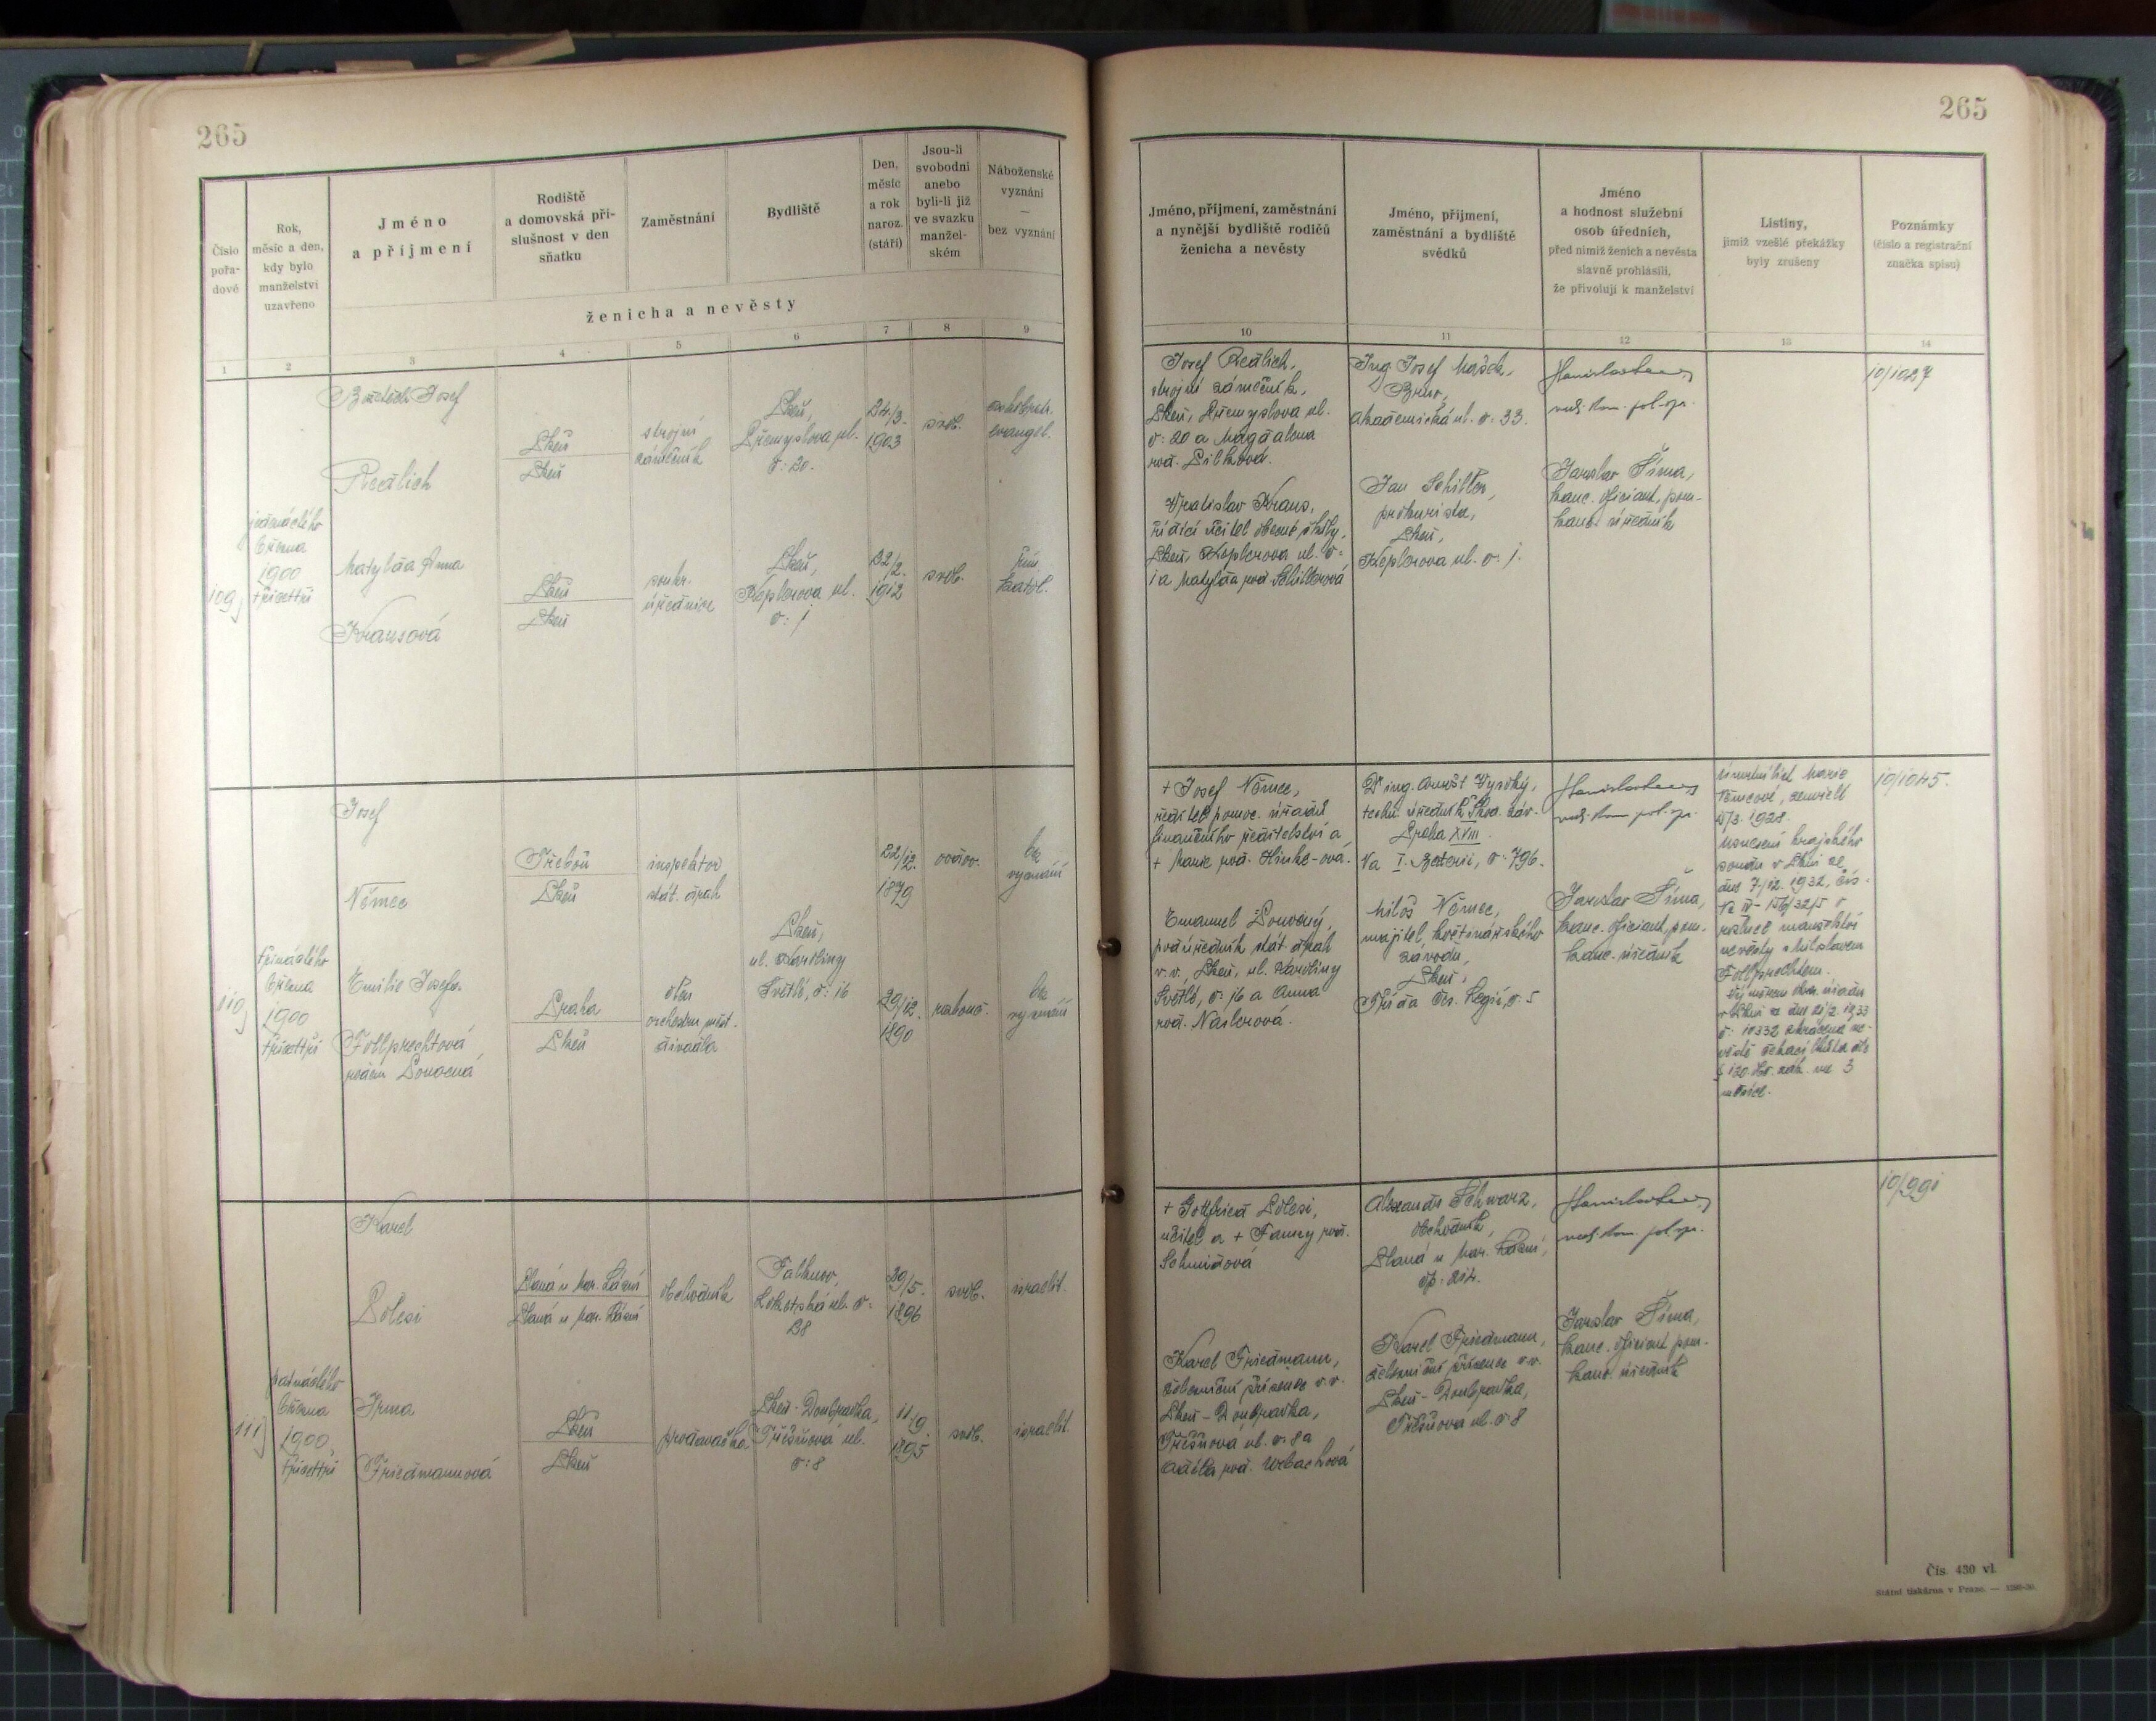 265
Číslo
pořa-
dové
Rok,
měsíc a den,
kdy bylo
manželství
uzavřeno
Jméno
a příjmení
Rodiště
a domovská pří-
slušnost v den
sňatku
Zaměstnání
Bydliště
Den,
měsíc
a rok
naroz.
(stáří)
Jsou-li
svobodni
anebo
byli-li již
ve svazku
manžel-
ském
Náboženské
vyznání
—
bez vyznání
ženicha a nevěsty
1
2
3
4
5
6
7
8
9
109
jedenáctého
března
1900
třicettři
Josef
Redlich
Plzeň
Plzeň
strojní
zámečník
Plzeň,
Přemyslova ul.
č: 20.
24./3.
1903
svob.
evangel.
Matylda Anna
Krausová
Plzeň
Plzeň
soukr.
úřednice
Plzeň,
Keplerova ul.
č: 1
1912
svob.
řím.
katol.
110
třináctého
března
1900
třicettři
Josef
Němec
Třeboň
Plzeň
inspektor
stát. drah
22/12.
1879
ovdov.
bez
vyznání
Plzeň,
ul. Karoliny
Světlé, č: 16
Emilie Josefa
Follprechtová
rozen.
Praha
Plzeň
člen
orchestru měst.
divadla
29/12.
1890
bez
vyznání
111
patnáctého
března
1900
třicettři
Karel
Polesi
Planá u Mar. Lázní
Planá u Mar. Lázní
obchodník
Falknov,
Loketská ul. č:
38
29/5.
1896
svob.
israelit.
Irma
Friedmannová
Plzeň
Plzeň
prodavačka
Plzeň - Doubravka,
Třešňová ul.
č: 8
11./9.
1895
svob.
israelit.
265
Jméno, příjmení, zaměstnání
a nynější bydliště rodičů
ženicha a nevěsty
Jméno, příjmení,
zaměstnání a bydliště
svědků
Jméno
a hodnost služební
osob úředních,
před nimiž ženich a nevěsta
slavně prohlásili,
že přivolují k manželství
Listiny,
jimiž vzešlé překážky
byly zrušeny
Poznámky
(číslo a registrační
značka spisu)
10
11
12
13
14
Josef Redlich,
strojní zámečník,
Plzeň, Přemyslova ul.
č: 20 a Magdalena
roz.
Ing Josef Mašek,
Brno,
Akademická ul. č: 33.
rada kom. pol. spr.
10/1027
Vratislav Kraus,
řídící učitel obecné školy,
Plzeň, Keplerova ul. č:
1 a Matylda roz. Schillerová
Jan Schiller,
prokurista,
Plzeň,
Keplerova ul. č: 1.
Jaroslav Šíma,
kanc. oficiant, pom-
kanc. úředník
+ Josef Němec,
ředitel pomoc. úřadů
finančního ředitelství a
+ Marie roz.
Dr ing. Arnošt Vysoký,
techn. úředník Škod. záv.
Praha XVIII.
Na I. Baterii, č: 796.
rada kom. pol. spr.
Úmrtní list Marie
Němcové, zemřelé
1928.
Usnesení krajského
soudu v Plzni ze
dne 7./12. 1932, čís.
o
rozluce manželství
nevěsty s
Follprechtem.
Výměrem okr. úřadu
v Plzni ze dne 21/2. 1933
č: 10332 zkrácena ne-
věstě čekací lhůta dle
§ 120. obč. zák. na 3
měsíce.
10/1045.
Emanuel
podúředník stát. drah
v. v., Plzeň, ul. Karoliny
Světlé, č: 16 a Anna
roz.
Miloš Němec,
majitel květinářského
závodu,
Plzeň,
Třída čs. Legií, č: 5
Jaroslav Šíma,
kanc. oficiant, pom-
kanc. úředník
+ Gottfried Polesi,
učitel a + Fanny roz.
Schmidová
Alexandr Schwarz,
obchodník,
Planá u Mar. Lázní,
čp: 214.
rada kom. pol. spr.
10/991
Karel Friedmann,
železniční zřízenec v. v.
Plzeň - Doubravka,
Třešňová ul. č: 8 a
Adéla roz.
Karel Friedmann,
železniční zřízenec v. v.
Plzeň - Doubravka,
Třešňová ul. č: 8
Jaroslav Šíma,
kanc. oficiant pom-
kanc. úředník
Čís. 430 vl.
Státní tiskárna v Praze. —